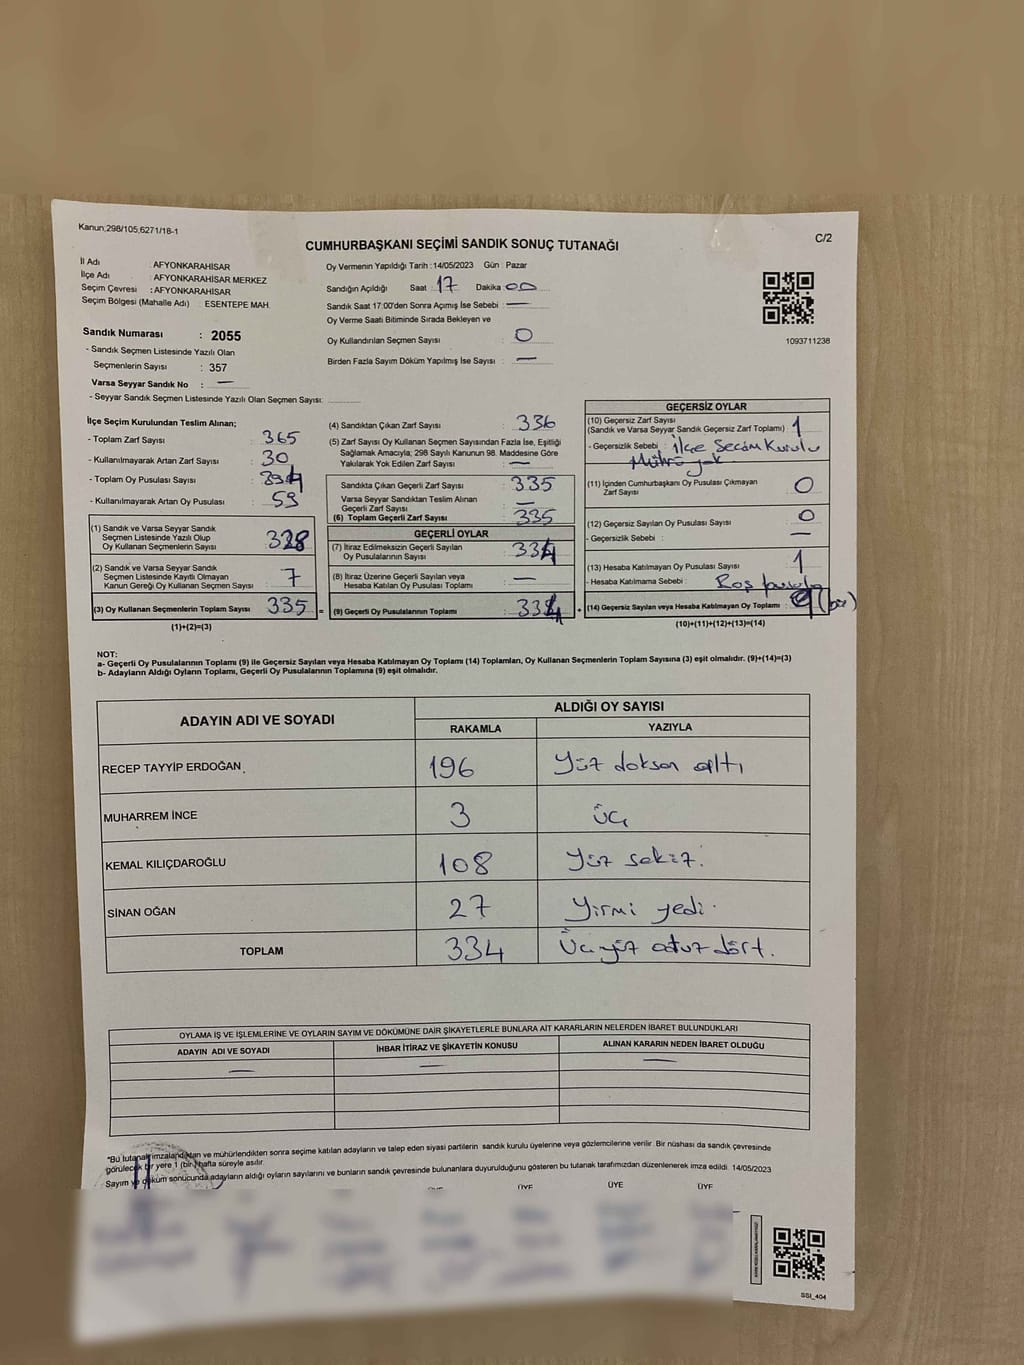 Kanun;298/105,6271/18-1
C/2
CUMHURBAŞKANI SEÇİMİ SANDIK SONUÇ TUTANAĞI
İl Adı : AFYONKARAHİSAR
İlçe Adı : AFYONKARAHİSAR MERKEZ
Seçim Çevresi : AFYONKARAHİSAR
Seçim Bölgesi (Mahalle Adı) : ESENTEPE MAH.
Sandık Numarası : 2055
- Sandık Seçmen Listesinde Yazılı Olan
Seçmenlerin Sayısı : 357
Varsa Seyyar Sandık No : —
- Seyyar Sandık Seçmen Listesinde Yazılı Olan Seçmen Sayısı:
Oy Vermenin Yapıldığı Tarih : 14/05/2023 Gün : Pazar
Sandığın Açıldığı Saat : 17 Dakika : 00
Sandık Saat 17:00'den Sonra Açımış İse Sebebi : —
Oy Verme Saati Bitiminde Sırada Bekleyen ve
Oy Kullandırılan Seçmen Sayısı : 0
Birden Fazla Sayım Döküm Yapılmış İse Sayısı : —
1093711238
İlçe Seçim Kurulundan Teslim Alınan;
- Toplam Zarf Sayısı : 365
- Kullanılmayarak Artan Zarf Sayısı : 30
- Toplam Oy Pusulası Sayısı : 394
- Kullanılmayarak Artan Oy Pusulası : 59
(1) Sandık ve Varsa Seyyar Sandık
Seçmen Listesinde Yazılı Olup
Oy Kullanan Seçmenlerin Sayısı : 328
(2) Sandık ve Varsa Seyyar Sandık
Seçmen Listesinde Kayıtlı Olmayan
Kanun Gereği Oy Kullanan Seçmen Sayısı : 7
(3) Oy Kullanan Seçmenlerin Toplam Sayısı : 335 =
(1)+(2)=(3)
(4) Sandıktan Çıkan Zarf Sayısı : 336
(5) Zarf Sayısı Oy Kullanan Seçmen Sayısından Fazla İse, Eşitliği
Sağlamak Amacıyla; 298 Sayılı Kanunun 98. Maddesine Göre
Yakılarak Yok Edilen Zarf Sayısı : —
Sandıkta Çıkan Geçerli Zarf Sayısı : 335
Varsa Seyyar Sandıktan Teslim Alınan
Geçerli Zarf Sayısı : —
(6) Toplam Geçerli Zarf Sayısı : 335
GEÇERLİ OYLAR
(7) İtiraz Edilmeksizin Geçerli Sayılan
Oy Pusulalarının Sayısı : 334
(8) İtiraz Üzerine Geçerli Sayılan veya
Hesaba Katılan Oy Pusulası Toplamı : —
(9) Geçerli Oy Pusulalarının Toplamı : 334 +
GEÇERSİZ OYLAR
(10) Geçersiz Zarf Sayısı
(Sandık ve Varsa Seyyar Sandık Geçersiz Zarf Toplamı) : 1
- Geçersizlik Sebebi : İlçe Secim Kurulu
Mührü yok
(11) İçinden Cumhurbaşkanı Oy Pusulası Çıkmayan
Zarf Sayısı : 0
(12) Geçersiz Sayılan Oy Pusulası Sayısı : 0
- Geçersizlik Sebebi : —
(13) Hesaba Katılmayan Oy Pusulası Sayısı : 1
- Hesaba Katılmama Sebebi : Boş pusula
(14) Geçersiz Sayılan veya Hesaba Katılmayan Oy Toplamı : (bir)
(10)+(11)+(12)+(13)=(14)
NOT:
a- Geçerli Oy Pusulalarının Toplamı (9) ile Geçersiz Sayılan veya Hesaba Katılmayan Oy Toplamı (14) Toplamları, Oy Kullanan Seçmenlerin Toplam Sayısına (3) eşit olmalıdır. (9)+(14)=(3)
b- Adayların Aldığı Oyların Toplamı, Geçerli Oy Pusulalarının Toplamına (9) eşit olmalıdır.
ADAYIN ADI VE SOYADI ALDIĞI OY SAYISI
RAKAMLA YAZIYLA
RECEP TAYYİP ERDOĞAN 196 Yüz doksan altı
MUHARREM İNCE 3 Üç
KEMAL KILIÇDAROĞLU 108 Yüz sekiz.
SİNAN OĞAN 27 Yirmi yedi.
TOPLAM 334 Üçyüz otuz dört.
OYLAMA İŞ VE İŞLEMLERİNE VE OYLARIN SAYIM VE DÖKÜMÜNE DAİR ŞİKAYETLERLE BUNLARA AİT KARARLARIN NELERDEN İBARET BULUNDUKLARI
ADAYIN ADI VE SOYADI İHBAR İTİRAZ VE ŞİKAYETİN KONUSU ALINAN KARARIN NEDEN İBARET OLDUĞU
— — —
*Bu tutanak imzalandıktan ve mühürlendikten sonra seçime katılan adayların ve talep eden siyasi partilerin sandık kurulu üyelerine veya gözlemcilerine verilir. Bir nüshası da sandık çevresinde
görülecek bir yere 1 (bir) hafta süreyle asılır.
Sayım ve döküm sonucunda adayların aldığı oyların sayılarını ve bunların sandık çevresinde bulunanlara duyurulduğunu gösteren bu tutanak tarafımızdan düzenlenerek imza edildi. 14/05/2023
ÜYE ÜYE ÜYE
SSİ_404